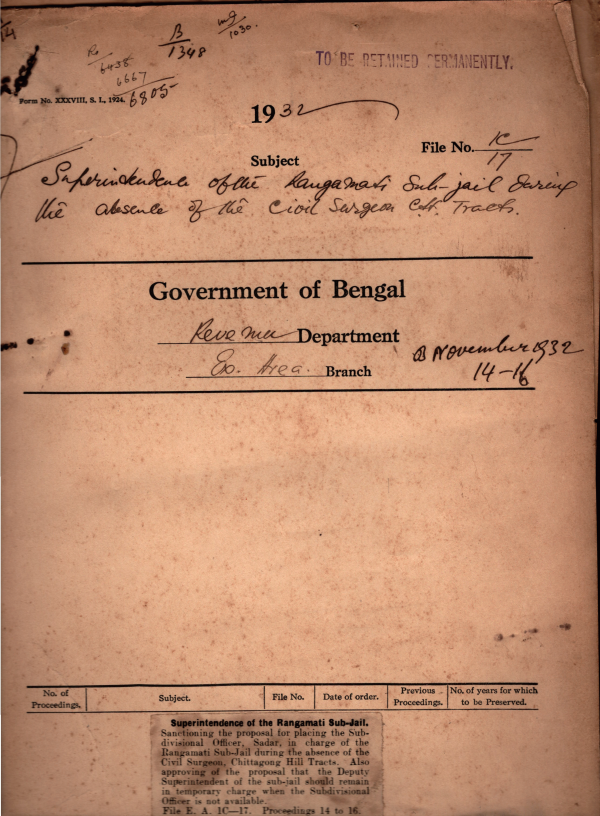 B
1348
mg
1030.
6438
6667
6805
TO BE RETAINED PERMANENTLY.
Form No. XXXVIII, S. I., 1924.
1932
File No. 1C
17
Subject
Superintendence of the Rangamati Sub-jail during
the absence of the Civil Surgeon Ctt. Tracts.
Government of Bengal
Revenue Department
Ex. Area. Branch
B November 1932
14-16
No. of Proceedings.
Subject.
File No.
Date of order.
Previous Proceedings.
No. of years for which to be Preserved.
Superintendence of the Rangamati Sub-Jail.
Sanctioning the proposal for placing the Sub-
divisional Officer, Sadar, in charge of the
Rangamati Sub-Jail during the absence of the
Civil Surgeon, Chittagong Hill Tracts. Also
approving of the proposal that the Deputy
Superintendent of the sub-jail should remain
in temporary charge when the Subdivisional
Officer is not available.
File E. A. 1C—17. Proceedings 14 to 16.